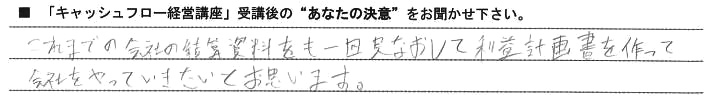 ■ 「キャッシュフロー経営講座」受講後の“あなたの決意”をお聞かせ下さい。
これまでの会社の決算資料をも一回見なおして利益計画書を作って
会社をやっていきたいとお思います。